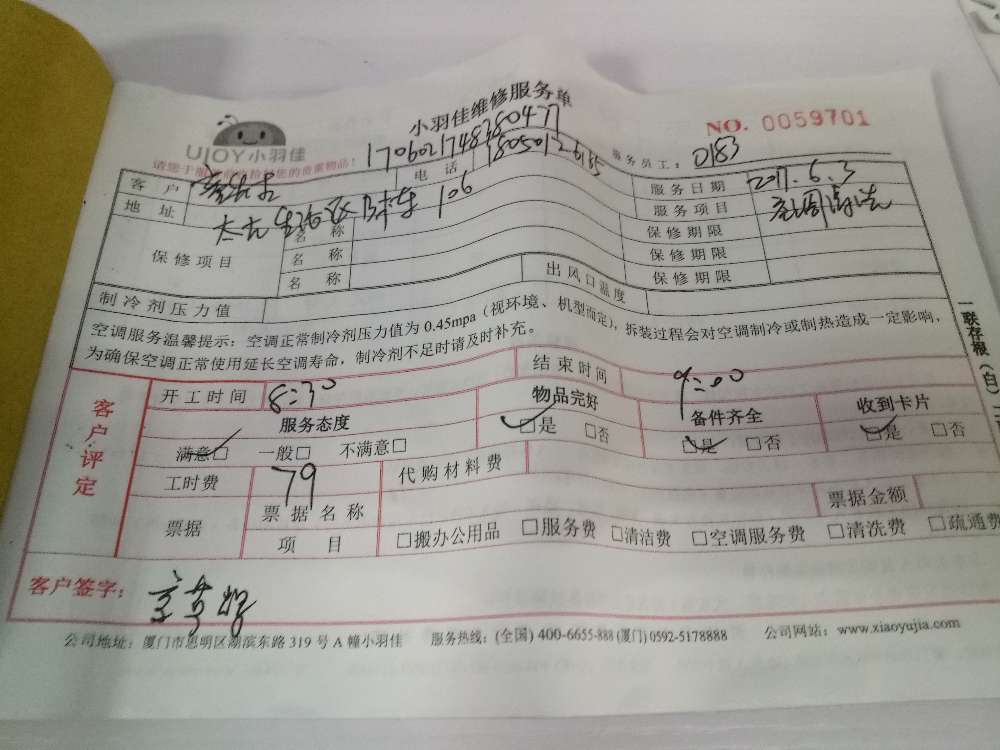 小羽佳维修服务单
NO. 0059701
UJOY小羽佳
17060217483380471
服务员工: 0183
客户 电话 服务日期 2017.6.3
地址 106 服务项目
保修项目 名称 保修期限
名称 保修期限
名称 保修期限
制冷剂压力值 出风口温度
空调服务温馨提示：空调正常制冷剂压力值为0.45mpa（视环境、机型而定），拆装过程会对空调制冷或制热造成一定影响，
为确保空调正常使用延长空调寿命，制冷剂不足时请及时补充。
一联存根（白）
客户评定
开工时间 8:30 结束时间 9:00
服务态度 物品完好 备件齐全 收到卡片
满意□ 一般□ 不满意□ □是 □否 □是 □否 □是 □否
工时费 79 代购材料费
票据 票据名称 票据金额
项目 □搬办公用品 □服务费 □清洁费 □空调服务费 □清洗费 □疏通费
客户签字：
公司地址：厦门市思明区湖滨东路319号A幢小羽佳 服务热线：(全国) 400-6655-888 (厦门) 0592-5178888 公司网站：www.xiaoyujia.com